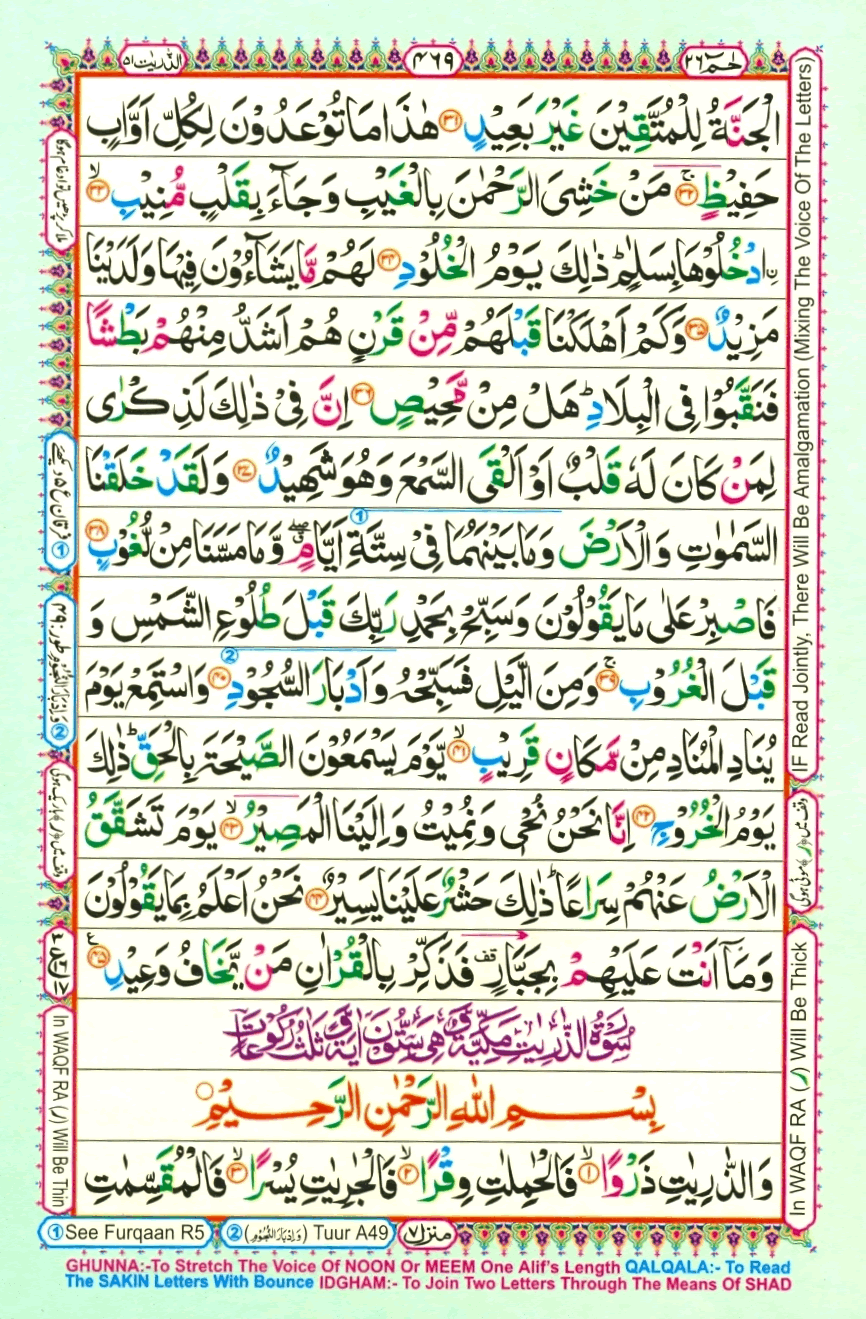 الذّٰریٰت ٥١
٤٦٩
حٰمٓ ٢٦
الْجَنَّةُ لِلْمُتَّقِیْنَ غَیْرَ بَعِیْدٍ ﴿۳۱﴾ هٰذَا مَا تُوْعَدُوْنَ لِكُلِّ اَوَّابٍ
حَفِیْظٍ ﴿۳۲﴾ۚ مَنْ خَشِیَ الرَّحْمٰنَ بِالْغَیْبِ وَجَآءَ بِقَلْبٍ مُّنِیْبِ ﴿۳۳﴾ۙ
ِ۟ادْخُلُوْهَا بِسَلٰمٍ ؕ ذٰلِكَ یَوْمُ الْخُلُوْدِ ﴿۳۴﴾ لَهُمْ مَّا یَشَآءُوْنَ فِیْهَا وَلَدَیْنَا
مَزِیْدٌ ﴿۳۵﴾ وَكَمْ اَهْلَكْنَا قَبْلَهُمْ مِّنْ قَرْنٍ هُمْ اَشَدُّ مِنْهُمْ بَطْشًا
فَنَقَّبُوْا فِی الْبِلَادِ ؕ هَلْ مِنْ مَّحِیْصٍ ﴿۳۶﴾ اِنَّ فِیْ ذٰلِكَ لَذِكْرٰی
لِمَنْ كَانَ لَهٗ قَلْبٌ اَوْ اَلْقَی السَّمْعَ وَهُوَ شَهِیْدٌ ﴿۳۷﴾ وَلَقَدْ خَلَقْنَا
السَّمٰوٰتِ وَالْاَرْضَ وَمَا بَیْنَهُمَا فِیْ سِتَّةِ اَیَّامٍ ۖۗ وَّمَا مَسَّنَا مِنْ لُّغُوْبٍ ﴿۳۸﴾
فَاصْبِرْ عَلٰی مَا یَقُوْلُوْنَ وَسَبِّحْ بِحَمْدِ رَبِّكَ قَبْلَ طُلُوْعِ الشَّمْسِ وَ
قَبْلَ الْغُرُوْبِ ﴿۳۹﴾ۚ وَمِنَ الَّیْلِ فَسَبِّحْهُ وَاَدْبَارَ السُّجُوْدِ ﴿۴۰﴾ وَاسْتَمِعْ یَوْمَ
یُنَادِ الْمُنَادِ مِنْ مَّكَانٍ قَرِیْبٍ ﴿۴۱﴾ۙ یَّوْمَ یَسْمَعُوْنَ الصَّیْحَةَ بِالْحَقِّ ؕ ذٰلِكَ
یَوْمُ الْخُرُوْجِ ﴿۴۲﴾ اِنَّا نَحْنُ نُحْیٖ وَنُمِیْتُ وَاِلَیْنَا الْمَصِیْرُ ﴿۴۳﴾ۙ یَوْمَ تَشَقَّقُ
الْاَرْضُ عَنْهُمْ سِرَاعًا ؕ ذٰلِكَ حَشْرٌ عَلَیْنَا یَسِیْرٌ ﴿۴۴﴾ نَحْنُ اَعْلَمُ بِمَا یَقُوْلُوْنَ
وَمَاۤ اَنْتَ عَلَیْهِمْ بِجَبَّارٍ قف فَذَكِّرْ بِالْقُرْاٰنِ مَنْ یَّخَافُ وَعِیْدِ ﴿۴۵﴾
سُوْرَةُ الذّٰرِیٰتِ مَكِّیَّةٌ وَّهِیَ سِتُّوْنَ اٰیَةً وَّثَلٰثُ رُكُوْعَاتٍ
بِسْمِ اللّٰهِ الرَّحْمٰنِ الرَّحِیْمِ
وَالذّٰرِیٰتِ ذَرْوًا ﴿۱﴾ۙ فَالْحٰمِلٰتِ وِقْرًا ﴿۲﴾ۙ فَالْجٰرِیٰتِ یُسْرًا ﴿۳﴾ۙ فَالْمُقَسِّمٰتِ
IF Read Jointly, There Will Be Amalgamation (Mixing The Voice Of The Letters)
وقف میں (ر) موٹی ہوگی
In WAQF RA (ر) Will Be Thick
ملا کر پڑھیں تو ادغام ہوگا
① فرقان ع ٥ دیکھئے
② وَاِدْبَارَ النُّجُوْمِ طور: ٤٩
وقف میں (ر) باریک ہوگی
In WAQF RA (ر) Will Be Thin
① See Furqaan R5
② (وَاِدْبَارَ النُّجُوْمِ) Tuur A49
منزل ٧
GHUNNA:-To Stretch The Voice Of NOON Or MEEM One Alif's Length QALQALA:- To Read
The SAKIN Letters With Bounce IDGHAM:- To Join Two Letters Through The Means Of SHAD